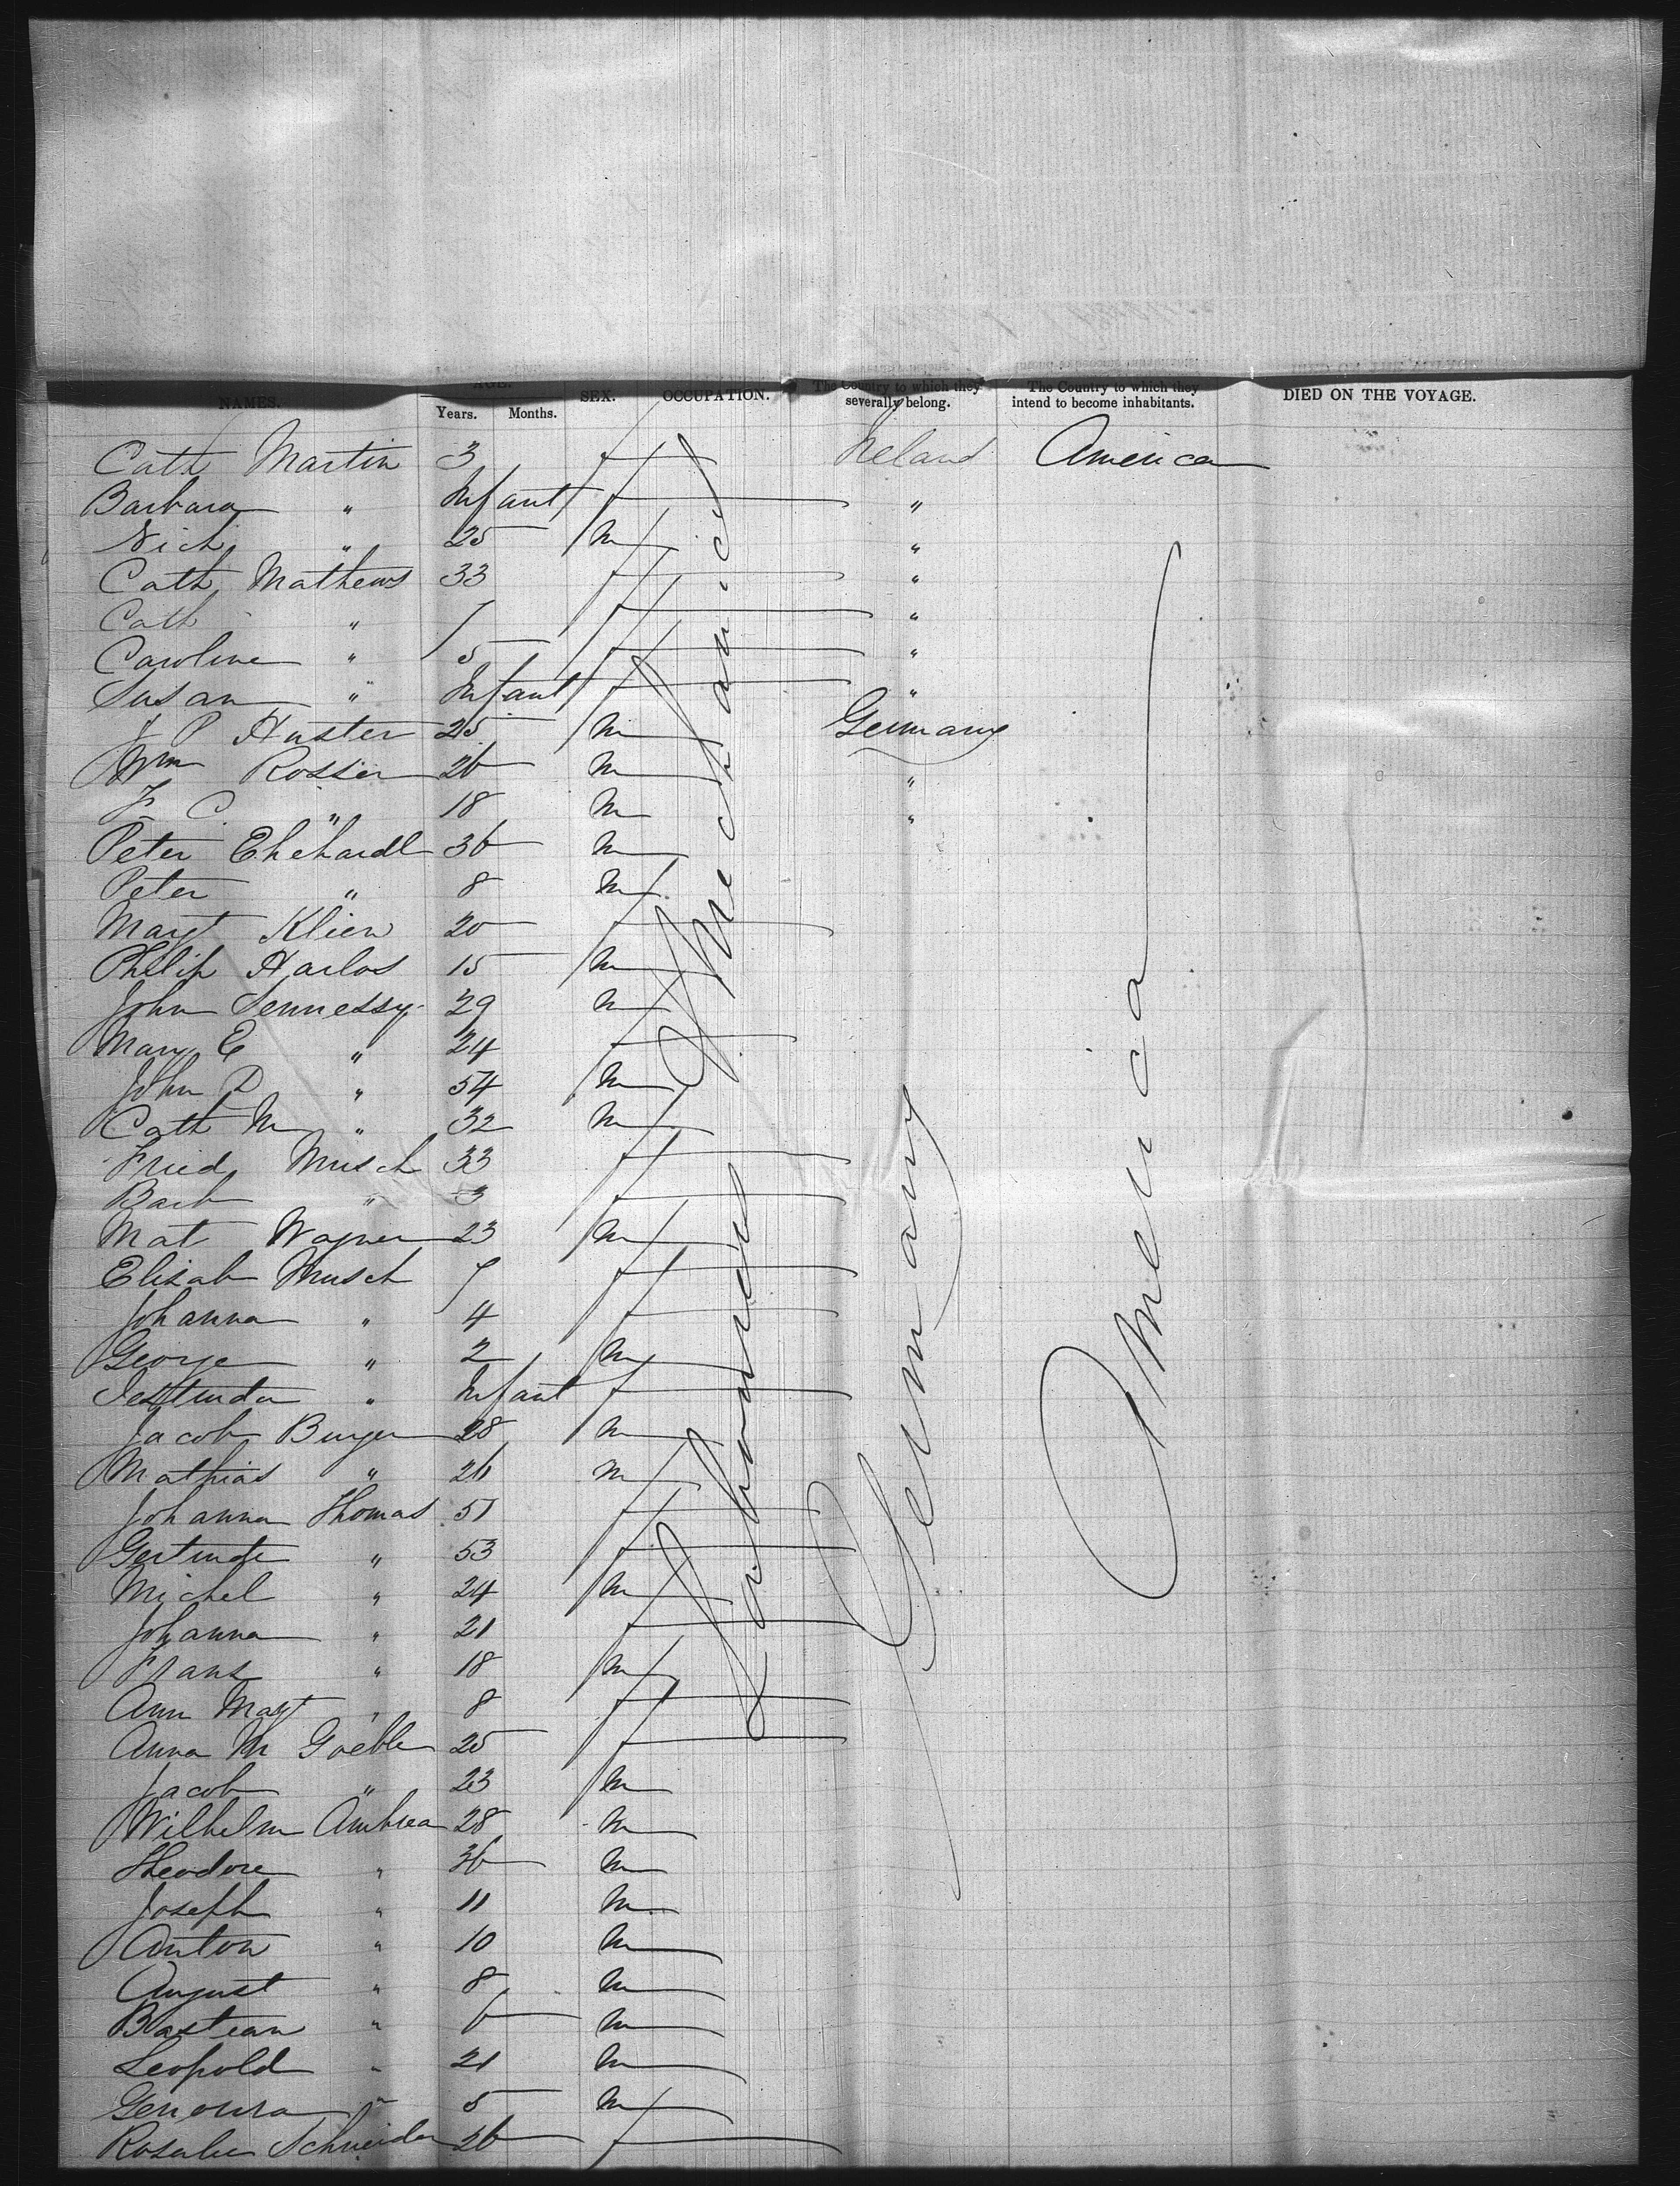 NAMES. AGE. Years. Months. SEX. OCCUPATION. The Country to which they severally belong. The Country to which they intend to become inhabitants. DIED ON THE VOYAGE.
Cath Martin 3 f Ireland America
Barbara " Infant f "
Nich " 25 m "
Cath Mathews 33 f "
Cath " 7 f "
Caroline " 5 f "
Susan " Infant f "
J P Huster 25 m Germany
Wm Rosser 26 m "
F C. " 18 m "
Peter Ehehardt 36 m
Peter " 8 m
Margt Klien 20 f
Philip Harlos 15 m
John Sennessy 29 m
Mary E " 24 f
John P " 54 m
Cath M " 32 m
Fried Musch 33 f
Barb " 3 f
Mat Wagner 23 m
Elisab Musch 7 f
Johanna " 4 f
George " 2 m
Gertruda " Infant f
Jacob Burger 28 m
Mathias " 26 m
Johanna Thomas 51 f
Gertrude " 53 f
Michel " 24 m
Johanna " 21 f
Franz " 18 m
Ann Magt " 8 f
Anna M Goeble 25 f
Jacob " 23 m
Wilhelm Ambrea 28 m
Theodore " 36 m
Joseph " 11 m
Anton " 10 m
August " 8 m
Bastean " 6 m
Leopold " 21 m
" 5 m
Rosalie Schneider 26 f
Mechanics
Labourers
Germany
America